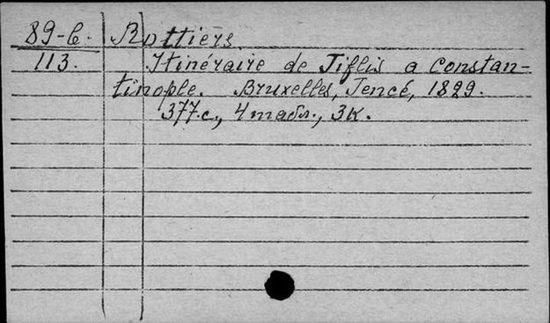 89-б. Rottiers.
113. Itinéraire de Tiflis a Constan-
tinople. Bruxelles, Tencé, 1829.
377 с., 4 табл., 3 к.